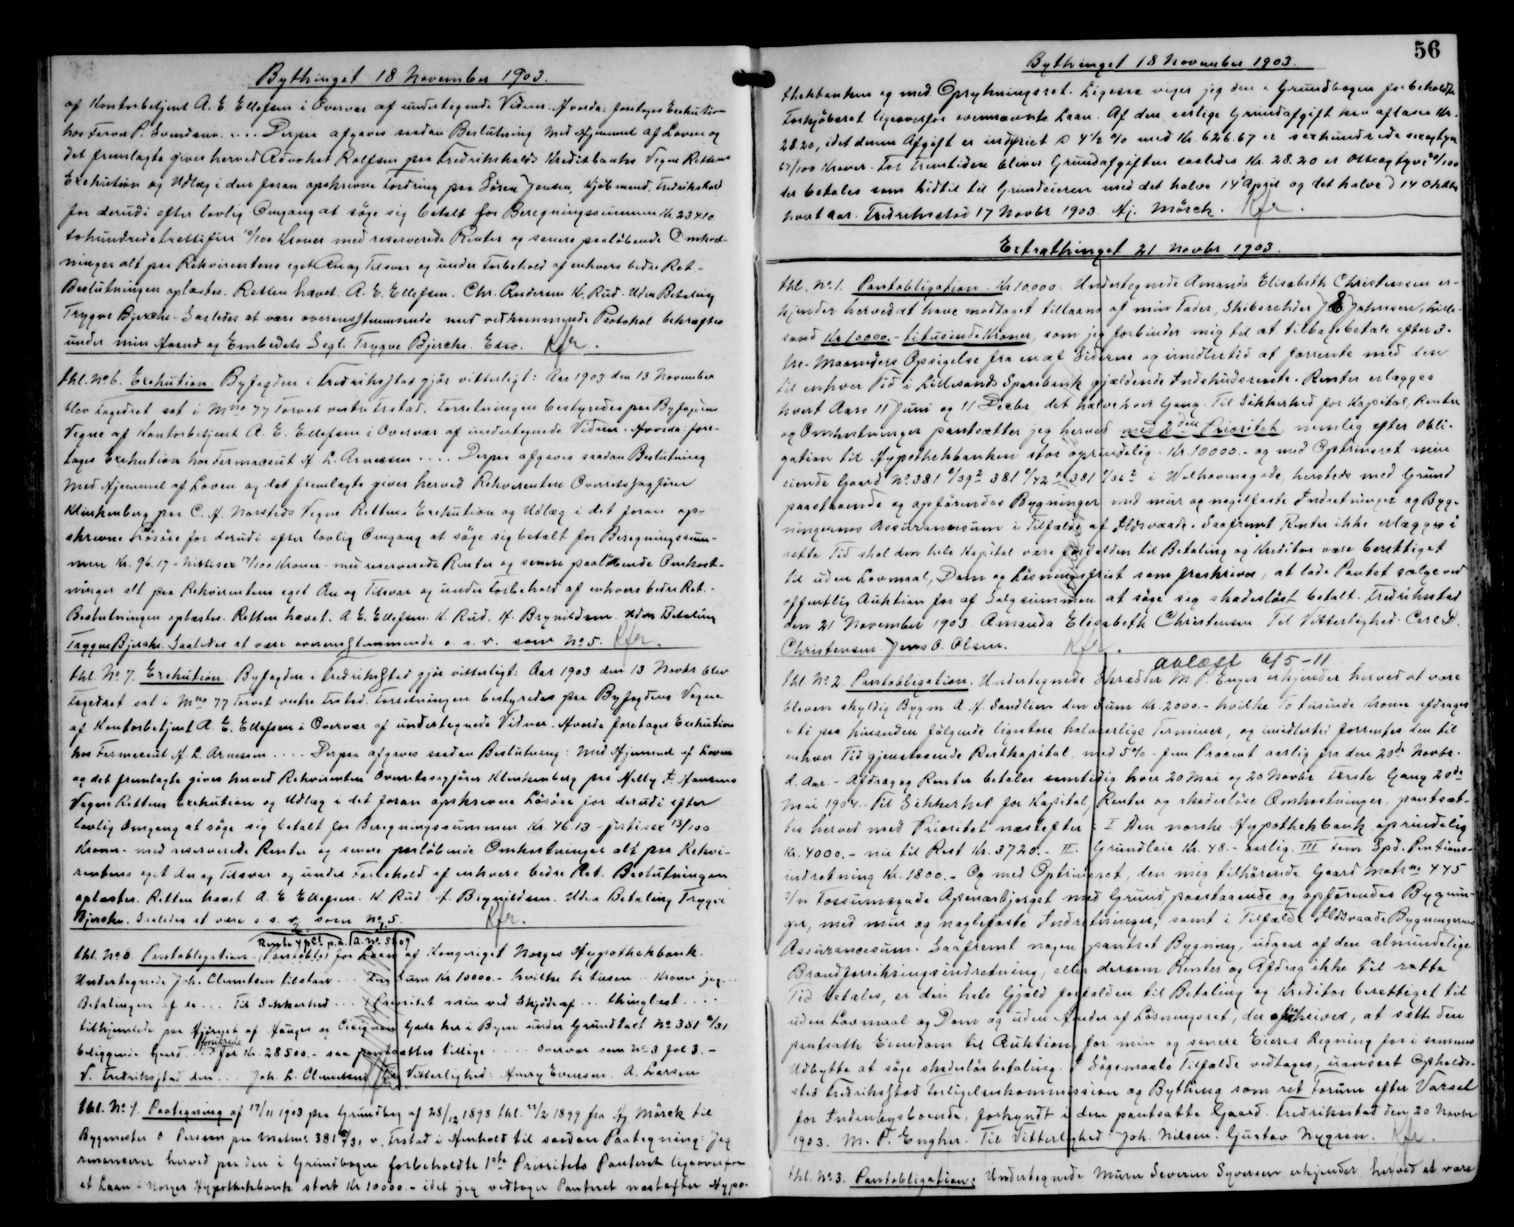 Bythinget 18 November 1903.
af Kontorbetjent A. E. Ellefsen i Overvær af undertegnede Vidner. Hvorda: foretages Exekution
hos Farver P. Svendsen. .... Derpaa afgaves saadan Beslutning Med Hjemmel af Loven og
det fremlagte gives herved Advokat Rolfsen paa Fredrikshalds Kreditbanks Vegne Rettens
Exekution og Udlæg i den foran opskrevne Fordring paa Sören Jensen, Kjöbmand, Fredrikshald
for derudi efter lovlig Omgang at söge sig betalt for Beregningssummen Kr. 234 10
tohundredetrettifire 10/100 Kroner med reserverede Renter og senere paalöbende Omkost-
ninger alt paa Rekvirentens eget An og Tilsvar og under Forbehold af enhvers bedre Ret.
Beslutningen oplæstes. Retten hævet. A. E. Ellefsen. Chr. Andersen K. Rud. Uden Betaling
Trygve Bjerche. Saaledes at være overensstemmende med vedkommende Protokol bekræftes
under min Haand og Embedets Segl. Trygve Bjerche. Edsv. Kfr.
thl. No 6. Exekution. Byfogden i Fredrikstad gjör vitterligt: Aar 1903 den 13 November
blev Fogedret sat i Mno 77 Torvet vestre Frstad. Forretningen bestyredes paa Byfogdens
Vegne af Kontorbetjent A. E. Ellefsen i Overvær af undertegnede Vidner. Hvorda fore-
tages Exekution hos Farmaceut H. L. Arnesen .... Derpaa afgaves saadan Beslutning
Med Hjemmel af Loven og det fremlagte gives herved Rekvirenten Overretssagförer
Klinkenberg paa C. H. Narsteds Vegne Rettens Exekution og Udlæg i det foran op-
skrevne Lösöre for derudi efter lovlig Omgang at söge sig betalt for Beregningssum-
men Kr. 96.17 - Nittisex 17/100 Kroner med reserverede Renter og senere paalöbende Omkost-
ninger alt paa Rekvirentens eget An og Tilsvar og under Forbehold af enhvers bedre Ret.
Beslutningen oplæstes. Retten hævet. A E. Ellefsen. K. Rud. H. Brynildsen. Uden Betaling
Trygve Bjerche. Saaledes at være overensstemmende o. s. v. som No 5. Kfr.
thl. No 7. Exekution. Byfogden i Fredrikstad gjör vitterligt: Aar 1903 den 13 Novbr blev
Fogedret sat i Mno 77 Torvet vestre Frstad. Forretningen bestyredes paa Byfogdens Vegne
af Kontorbetjent A. E. Ellefsen i Overvær af undertegnede Vidner. Hvorda foretages Exekution
hos Farmaceut H. L. Arnesen .... Derpaa afgaves saadan Beslutning: Med Hjemmel af Loven
og det fremlagte gives herved Rekvirenten Overretssagförer Klinkenberg paa Helly F. Hansens
Vegne Rettens Exekution og Udlæg i det foran opskrevne Lösöre for derudi efter
lovlig Omgang at söge sig betalt for Beregningssummen Kr. 46 13 - förtisex 13/100
Kroner - med reserverede Renter og senere paalöbende Omkostninger alt paa Rekvi-
rentens eget An og Tilsvar og under Forbehold af enhvers bedre Ret. Beslutningen
oplæstes. Retten hævet A. E. Ellefsen. K. Rud H. Brynildsen. Uden Betaling Trygve
Bjerche. Saaledes at være o s. v. som No 5. Kfr.
Rente 4 pCt. p.a. A. No. 5609
thl. No 8 Pantobligation. Pantobl. for Laan af Kongeriget Norges Hypothekbank.
Undertegnede Joh. L. Clemetsen tilstaar ... den Sum Kr 10000.- hvilke ti tusen .. Kroner jeg...
Betalingen af re ... Til Sikkerhed ... 1 Prioritet min ved Skjöde af ... thinglæst ....
tilhjemlede paa Hjörnet af Hauges og Cicignons Gade her i Byen under Grundtaxt No 381 a/31
beliggende Gaard ... forsikrede for Kr. 28500.- saa pantsættes tillige .... Overvær som No 3 fol 3.-
V. Fredrikstad den ... Joh. L. Clemetsen Til Vitterlighed: Henry Evensen. A. Larsen
thl. No 9. Paategning af 17/11 1903 paa Grundbrev af 28/12 1898 thl. 22/2 1899 fra Hj Mörck til
Bygmester O. Persen paa Matrno. 381 a/31 v. Frstad i Henhold til saadan Paategning: jeg
renoncerer herved paa den i Grundbogen forbeholdte 1ste Prioritets Panteret ligeoverfor
et Laan i Norges Hypothekbank stort Kr 10000.- idet jeg vedtager Panteret næstefter Hypo-
56
Bythinget 18 November 1903.
thekbanken og med Oprykningsret. Ligesaa viger jeg den i Grundbogen forbeholdte
Forkjöbsret ligeoverfor ovennævnte Laan. Af den aarlige Grundafgift kan aflöses Kr.
28.20, idet denne Afgift er indfriet à 4 1/2 % med Kr. 626.67 er sexhundrede sexogtyve
67/100 Kroner. For Fremtiden bliver Grundafgiften saaledes Kr. 28.20 er Otteogtyve 20/100
der betales som hidtil til Grundeieren med det halve 14 April og det halve 14 Oktbr
hvert Aar. Fredrikstad 17 Novbr 1903. Hj. Mörck. Kfr.
Extrathinget 21 Novbr 1903.
thl. No 1. Pantobligation. Kr 10000. Undertegnede Amanda Elisabeth Christensen er-
kjender herved at have modtaget tillaans af min Fader, Skibsrheder J. Johnsen, Lille-
sand Kr 10000.- titusinde Kroner, som jeg forbinder mig til at tilbagebetale efter 3-
tre-Maaneders Opsigelse fra en af Siderne og imidlertid at forrente med den
til enhver Tid i Lillesands Sparebank gjældende Indskudsrente. Renten erlægges
hvert Aars 11 Juni og 11 Decbr det halve hver Gang. Til Sikkerhed for Kapital, Renter
og Omkostninger pantsætter jeg herved med 2den Prioritet nemlig efter Obli-
gation til Hypothekbanken stor oprindelig Kr. 10000.- og med Optrinsret min
eiende Gaard No 381 c/39a 381 c/42 og 381 c/36a i Wolhovensgade, hersteds med Grund
paastaaende og opförendes Bygninger med mur og nagelfaste Indretninger og Byg-
ningernes Assurancesum i Tilfælde af Ildsvaade. Saafremt Renter ikke erlægges i
rette Tid skal den hele Kapital være forfalden til Betaling og Kreditor være berettiget
til uden Lovmaal, Dom og Lösningsfrist som fraskrives, at lade Pantet sælge ved
offentlig Auktion for af Salgssummen at söge sig skadeslöst betalt. Fredrikstad
den 21 November 1903. Amanda Elisabeth Christensen. Til Vitterlighed. Carl L.
Christensen Jens O. Olsen. Kfr.
avlæst 6/5-11
thl No 2. Pantobligation. Undertegnede Skrædder M. P. Enger erkjender herved at være
bleven skyldig Bygm. A. H. Sandlien den Sum Kr. 2000.- hvilke To tusinde Kroner afdrages
i ti paa hinanden fölgende ligestore halvaarlige Terminer, og imidlertid forrentes den til
enhver Tid gjenstaaende Restkapital med 5% - fem Procent aarlig fra den 20de Novbr.
d. Aar. - Afdrag og Renter betales samtidig hver 20 Mai og 20 Novbr Förste Gang 20de
Mai 1904. Til Sikkerhed for Kapital, Renter og skadeslöse Omkostninger pantsæt-
tes herved med Prioritet næstefter: I Den norske Hypothekbank oprindelig
Kr. 4000.- nu til Rest Kr. 3720.- II. Grundleie Kr. 48.- aarlig. III fem Spd. Pentions-
indretning Kr. 1800.- Og med Optrinsret, den mig tilhörende Gaard Matrno 445
i Fossumsgade Apenæsbjerget med Grund, paastaaende og opförendes Bygnin-
ger, med mur og naglefaste Indretninger, samt i Tilfælde Ildsvaade Bygningernes
Assurancesum. Saafremt nogen pantsat Bygning, udgaar af den almindelige
Brandforsikringsindretning, eller dersom Renter og Afdrag ikke til rette
Tid betales, er den hele Gjæld forfalden til Betaling og Kreditor berettiget til
uden Lovmaal og Dom og uden Hinder af Lösningsret, der afskrives, at sætte den
pantsatte Eiendom til Auktion for min og senere Eieres Regning for i sammes
Udbytte at söge skadeslösbetaling. I Sögsmaals Tilfælde vedtages, uanseet Opholds-
sted Fredrikstad Forligelseskommission og Bything som ret Forum efter Varsel
for Indenbysboende, forkyndt i den pantsatte Gaard. Fredrikstad den 20 Novbr
1903. M. P. Engher. Til Vitterlighed: Joh. Nilsen. Gustav Nygren. Kfr.
thl. No 3. Pantobligation: Undertegnede Murer Severin Syversen erkjender herved at være